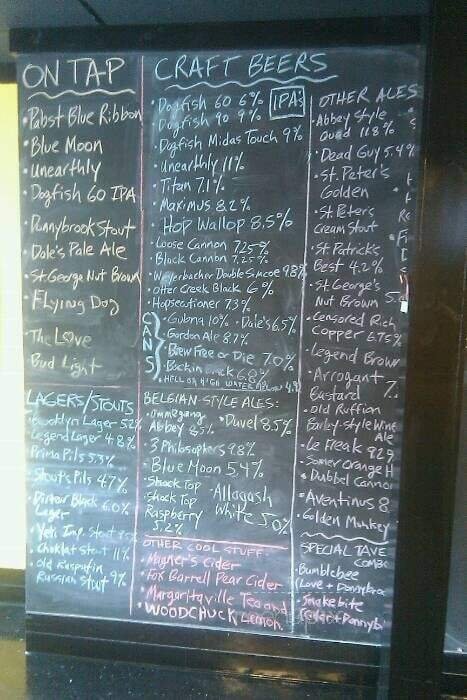 ON TAP
• Pabst Blue Ribbon
• Blue Moon
• Unearthly
• Dogfish 60 IPA
• Dunnybrook Stout
• Dale's Pale Ale
• St George Nut Brown
• Flying Dog
• The Love
• Bud Light
LAGERS/STOUTS
• Brooklyn Lager 5.2
• Legend Lager 4.8%
• Prima Pils 5.3%
• Stout's Pils 4.7%
Black 6.0%
Lager
• Yeti Imp. Stout
• Choklat Stout 11%
• Old Rasputin
Russian Stout 9%
CRAFT BEERS
IPA's
• Dogfish 60 6%
• Dogfish 90 9%
• Dogfish Midas Touch 9%
• Unearthly 11%
• Titan 7.1%
• Maximus 8.2%
• Hop Wallop 8.5%
• Loose Cannon 7.25%
• Black Cannon 7.25%
• Weyerbacher Double Simcoe 9.8%
• Otter Creek Black 6%
• Hopsecutioner 7.3%
CANS
• Gubna 10% • Dale's 6.5%
• Gordon Ale 8.7%
• Brew Free or Die 7.0%
• Buckin back 6.8%
• HELL OR HIGH WATER MELON
BELGIAN-STYLE ALES:
• Ommegang
Abbey 8.5%
• Duvel 8.5%
• 3 Philosophers 9.8%
• Blue Moon 5.4%
• Shock Top
• Shock Top
Raspberry
5.2%
• Allagash
White 5.0%
OTHER COOL STUFF:
• Magner's Cider
• Fox Barrell Pear Cider
• Margaritaville Tea and
Lemon
• WOODCHUCK
OTHER ALES
• Abbey Style
Quad 11.8%
• Dead Guy 5.4%
• St. Peter's
Golden
• St Peter's
Cream Stout
• St Patrick's
Best 4.2%
• St George's
Nut Brown
• Censored Rich
Copper 6.75%
• Legend Brown
• Arrogant
Bastard
• Old Ruffian
Barley-style Wine
Ale
• Le Freak 9.2%
• Somer Orange H
• Dubbel Canno
• Aventinus 8
• Golden Monkey
SPECIAL TAVE
COMBO
• Bumblebee
(Love + Dunnybro
• Snakebite
(Cider + Dunnyb